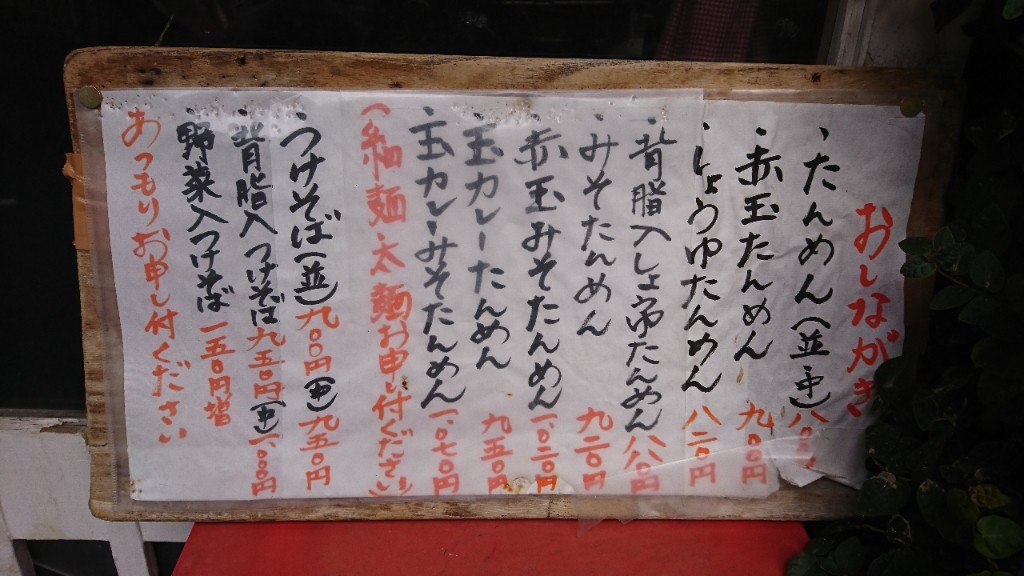 おしながき
・たんめん(並・中)八〇〇円
・赤玉たんめん 九〇〇円
・しょうゆたんめん 八二〇円
・背脂入しょうゆたんめん 八八〇円
・みそたんめん 九二〇円
・赤玉みそたんめん 一、〇二〇円
・玉カレーたんめん 九五〇円
・玉カレーみそたんめん 一、〇七〇円
(細麺・太麺お申し付ください)
・つけそば(並)九〇〇円(中)九五〇円
・背脂入つけそば九五〇円(中)一、〇〇〇円
・野菜入つけそば 一五〇円増
あつもりお申し付ください